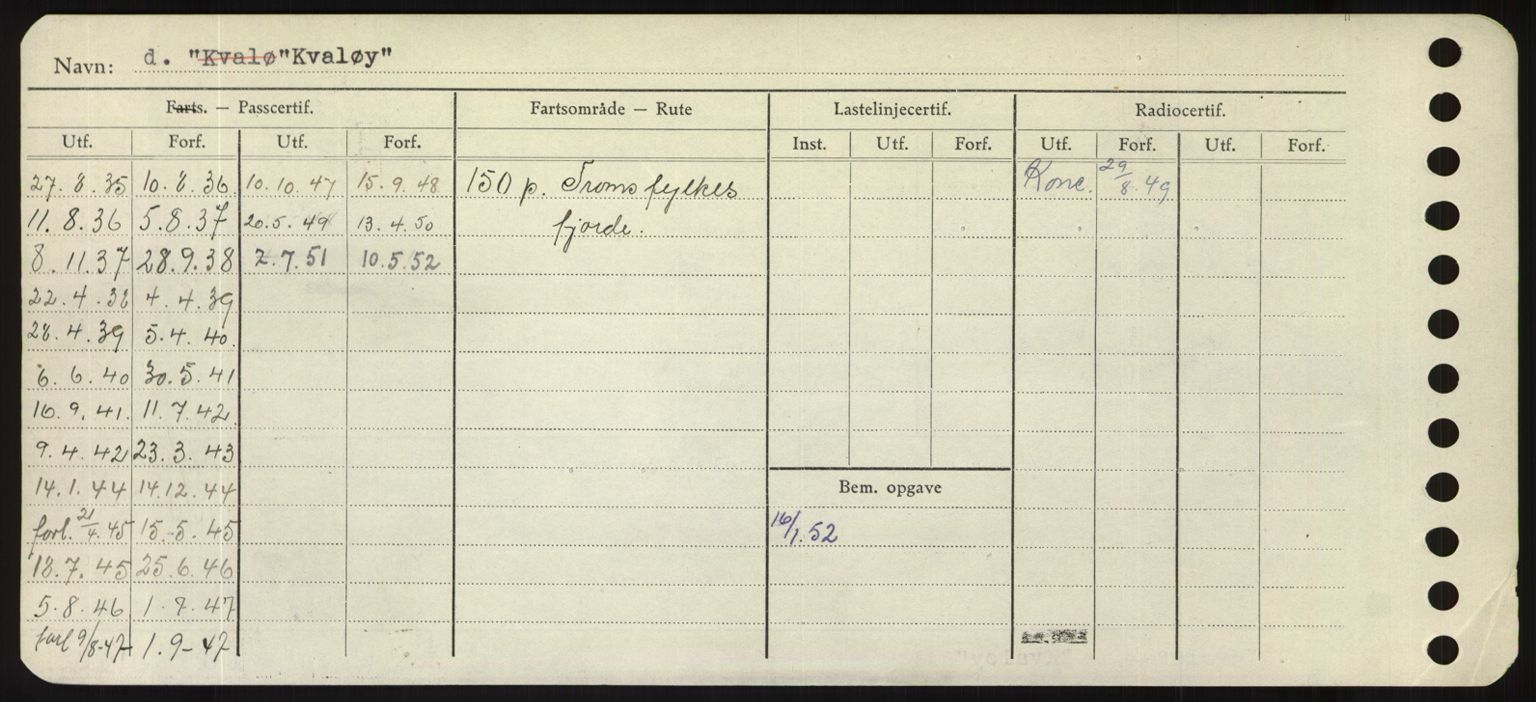 Navn: d. "Kvalø"Kvaløy"
Farts. — Passcertif. Fartsområde — Rute Lastelinjecertif. Radiocertif.
Utf. Forf. Utf. Forf. Inst. Utf. Forf. Utf. Forf. Utf. Forf.
27.8.35 10.8.36 10.10.47 15.9.48 150 p. Troms fylkes Konc. 29/8.49
11.8.36 5.8.37 20.5.49 13.4.50 fjorde.
8.11.37 28.9.38 2.7.51 10.5.52
22.4.38 4.4.39
28.4.39 5.4.40.
6.6.40 30.5.41
16.9.41. 11.7.42
9.4.42 23.3.43
14.1.44 14.12.44 Bem. opgave
forl. 21/4.45 15.-5.45 16/1.52
13.7.45 25.6.46
5.8.46 1.7.47
forl 9/8-47 1.9-47